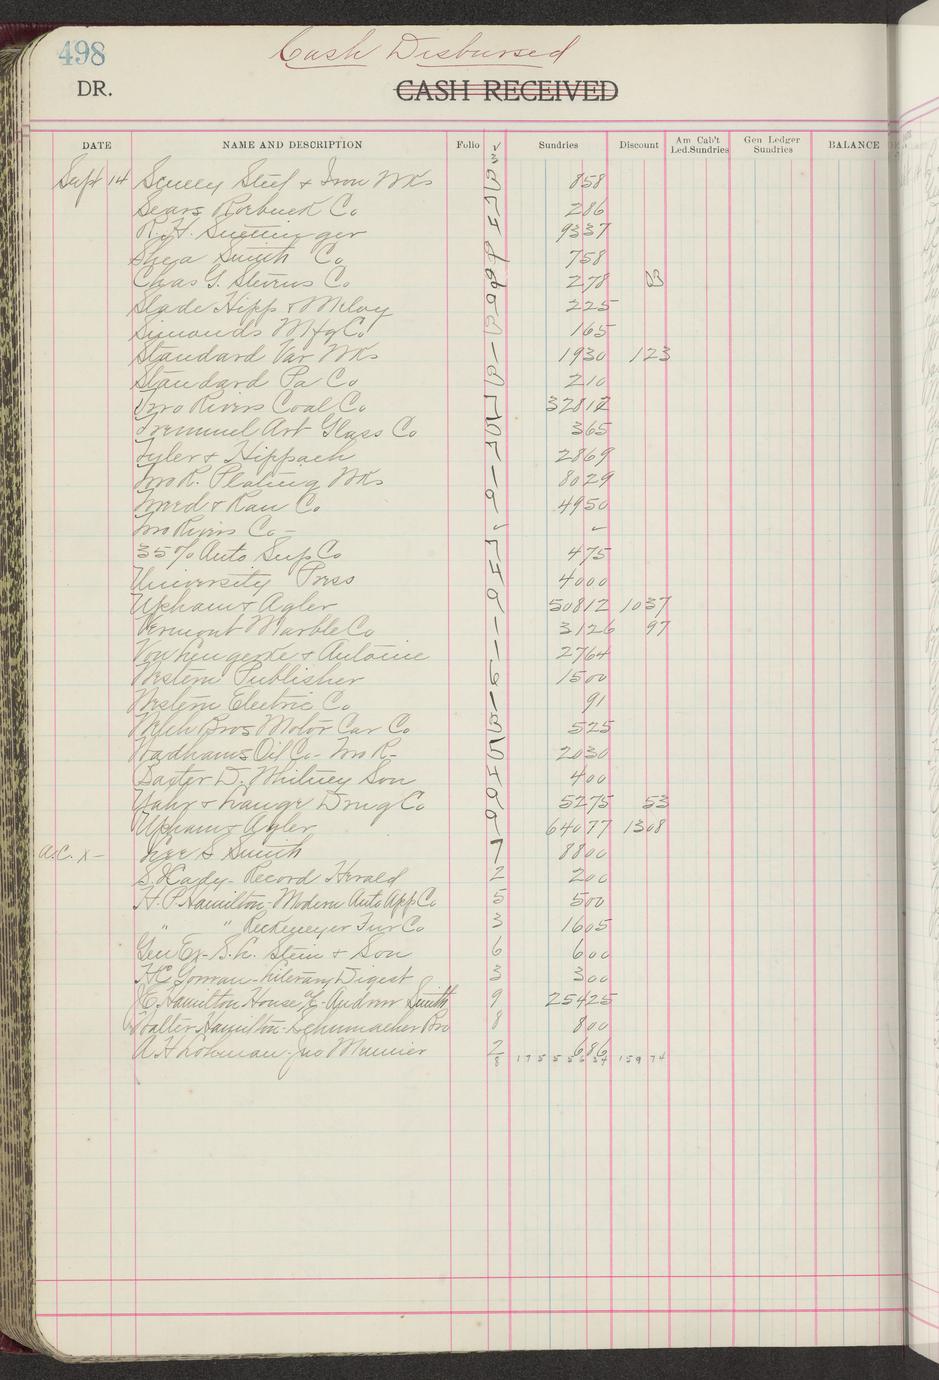 498
Cash Disbursed
DR. CASH RECEIVED
DATE NAME AND DESCRIPTION Folio Sundries Discount Am Cab't Led.Sundries Gen Ledger Sundries BALANCE
Sept 14 Scully Steel & Iron Wks 858
Sears Roebuck Co 286
R. H. 9337
Shea Smith Co 758
Chas G. Stevens Co 278
Slade Hipp & Meloy 225
Simonds Mfg Co 165
Standard Var Wks 1930 123
Standard Pa Co 210
Two Rivers Coal Co 32812
Art Glass Co 365
Tyler & Hippach 2869
Two R. Plating Wks 8029
Co 4950
Two Rivers Co -
35% Auto Sup Co 475
University Press 4000
Upham & Agler 50812 1037
Vermont Marble Co 3126 97
Von Lengerke & Antoine 2764
Western Publisher 1500
Western Electric Co 91
Welch Bros Motor Car Co 525
Wadhams Oil Co - Two R - 2030
Baxter D. Whitney Son 400
Yahr & Lange Drug Co 5275 53
Upham & Agler 64077 1308
a.c. x - Lee S Smith 7 8800
Record Herald 2 200
H. P. Hamilton - Modern Auto App Co 5 500
" " Reckmeyer Fur Co 3 1605
Gen Ex - S. L. Stein & Son 6 600
H C Gorman - Literary Digest 3 300
J. E. Hamilton House a/c - Andrew Smith 9 25425
Walter Hamilton - Schumacher Bro 8 800
A H Lohman - Jno 2 686
8 159 74